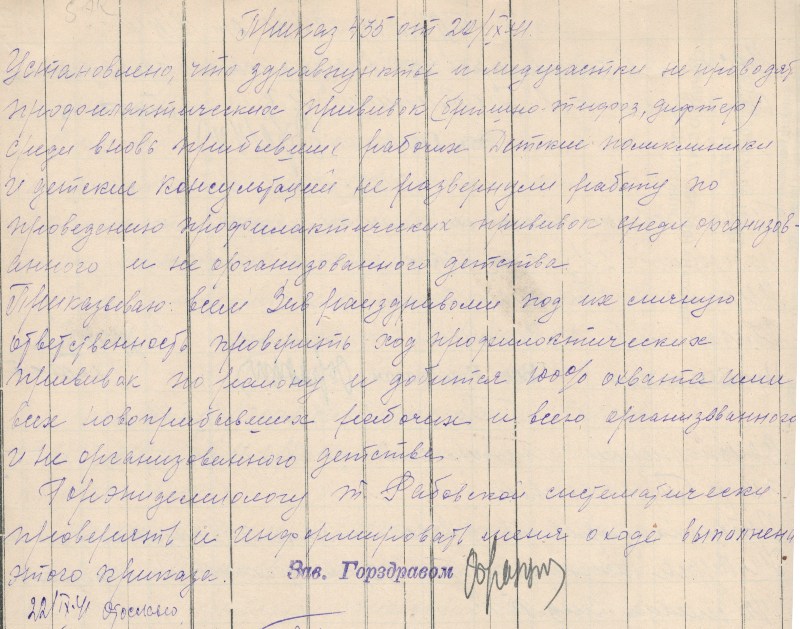 Приказ 435 от 20/IX 41.
Установлено, что здравпункты и медучастки не проводят
профилактических прививок (брюшно-тифозн, дифтер)
среди вновь прибывших рабочих Детские поликлиники
и детские консультаций не развернули работу по
проведению профилактических прививок среди организов-
анного и не организованного детства
Приказываю: всем Зав райздравами под их личную
ответственность проверить ход профилактических
прививок по району и добится 100% охвата ими
всех новоприбывших рабочих и всего организованного
и не организованного детства
Горэпидемиологу т. систематически
проверять и информировать меня о ходе выполнени
этого приказа.
Зав. Горздравом
22/IX 41